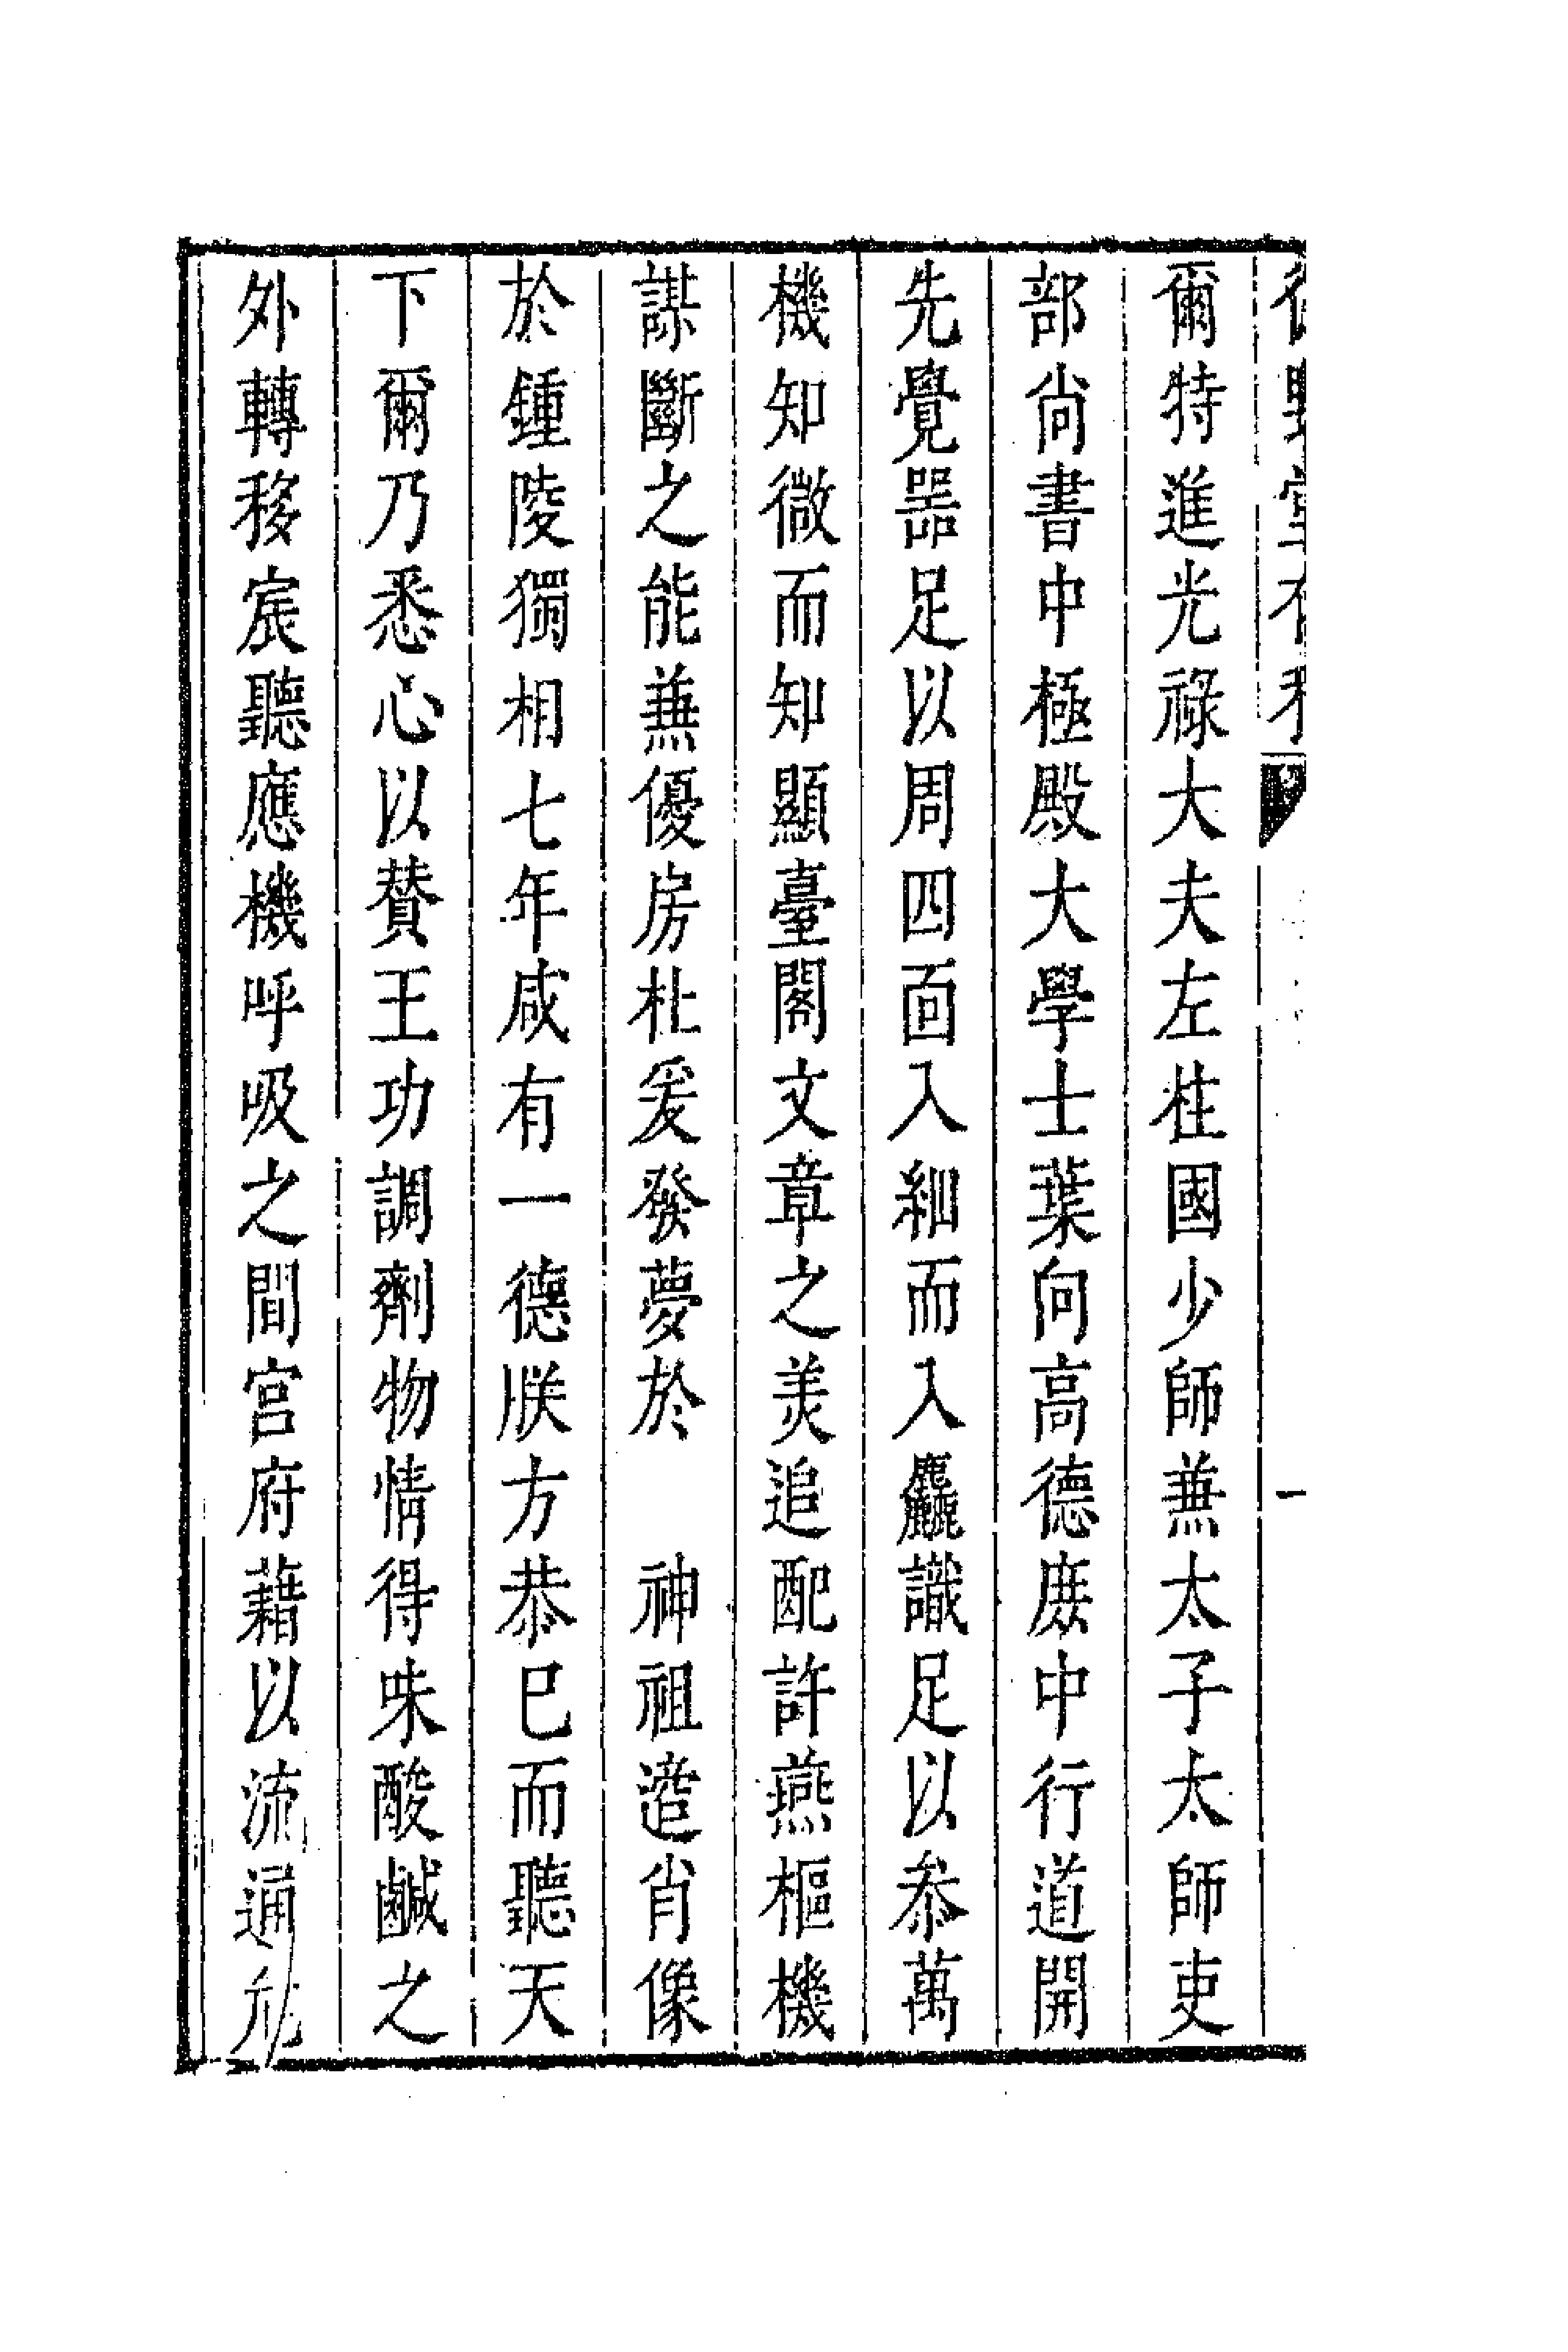 爾特進光祿大夫左柱國少師兼太子太師吏
部尚書中極殿大學士葉向高德庶中行道開
先覺器足以周四面入細而入麤識足以叅萬
機知微而知顯臺閣文章之美追配許燕樞機
謀斷之能兼優房杜爰發夢於　神祖遊肖像
於鍾陵獨相七年咸有一德朕方恭巳而聽天
下爾乃悉心以贊王功調劑物情得味酸鹹之
外轉移宸聽應機呼吸之間宮府藉以流通